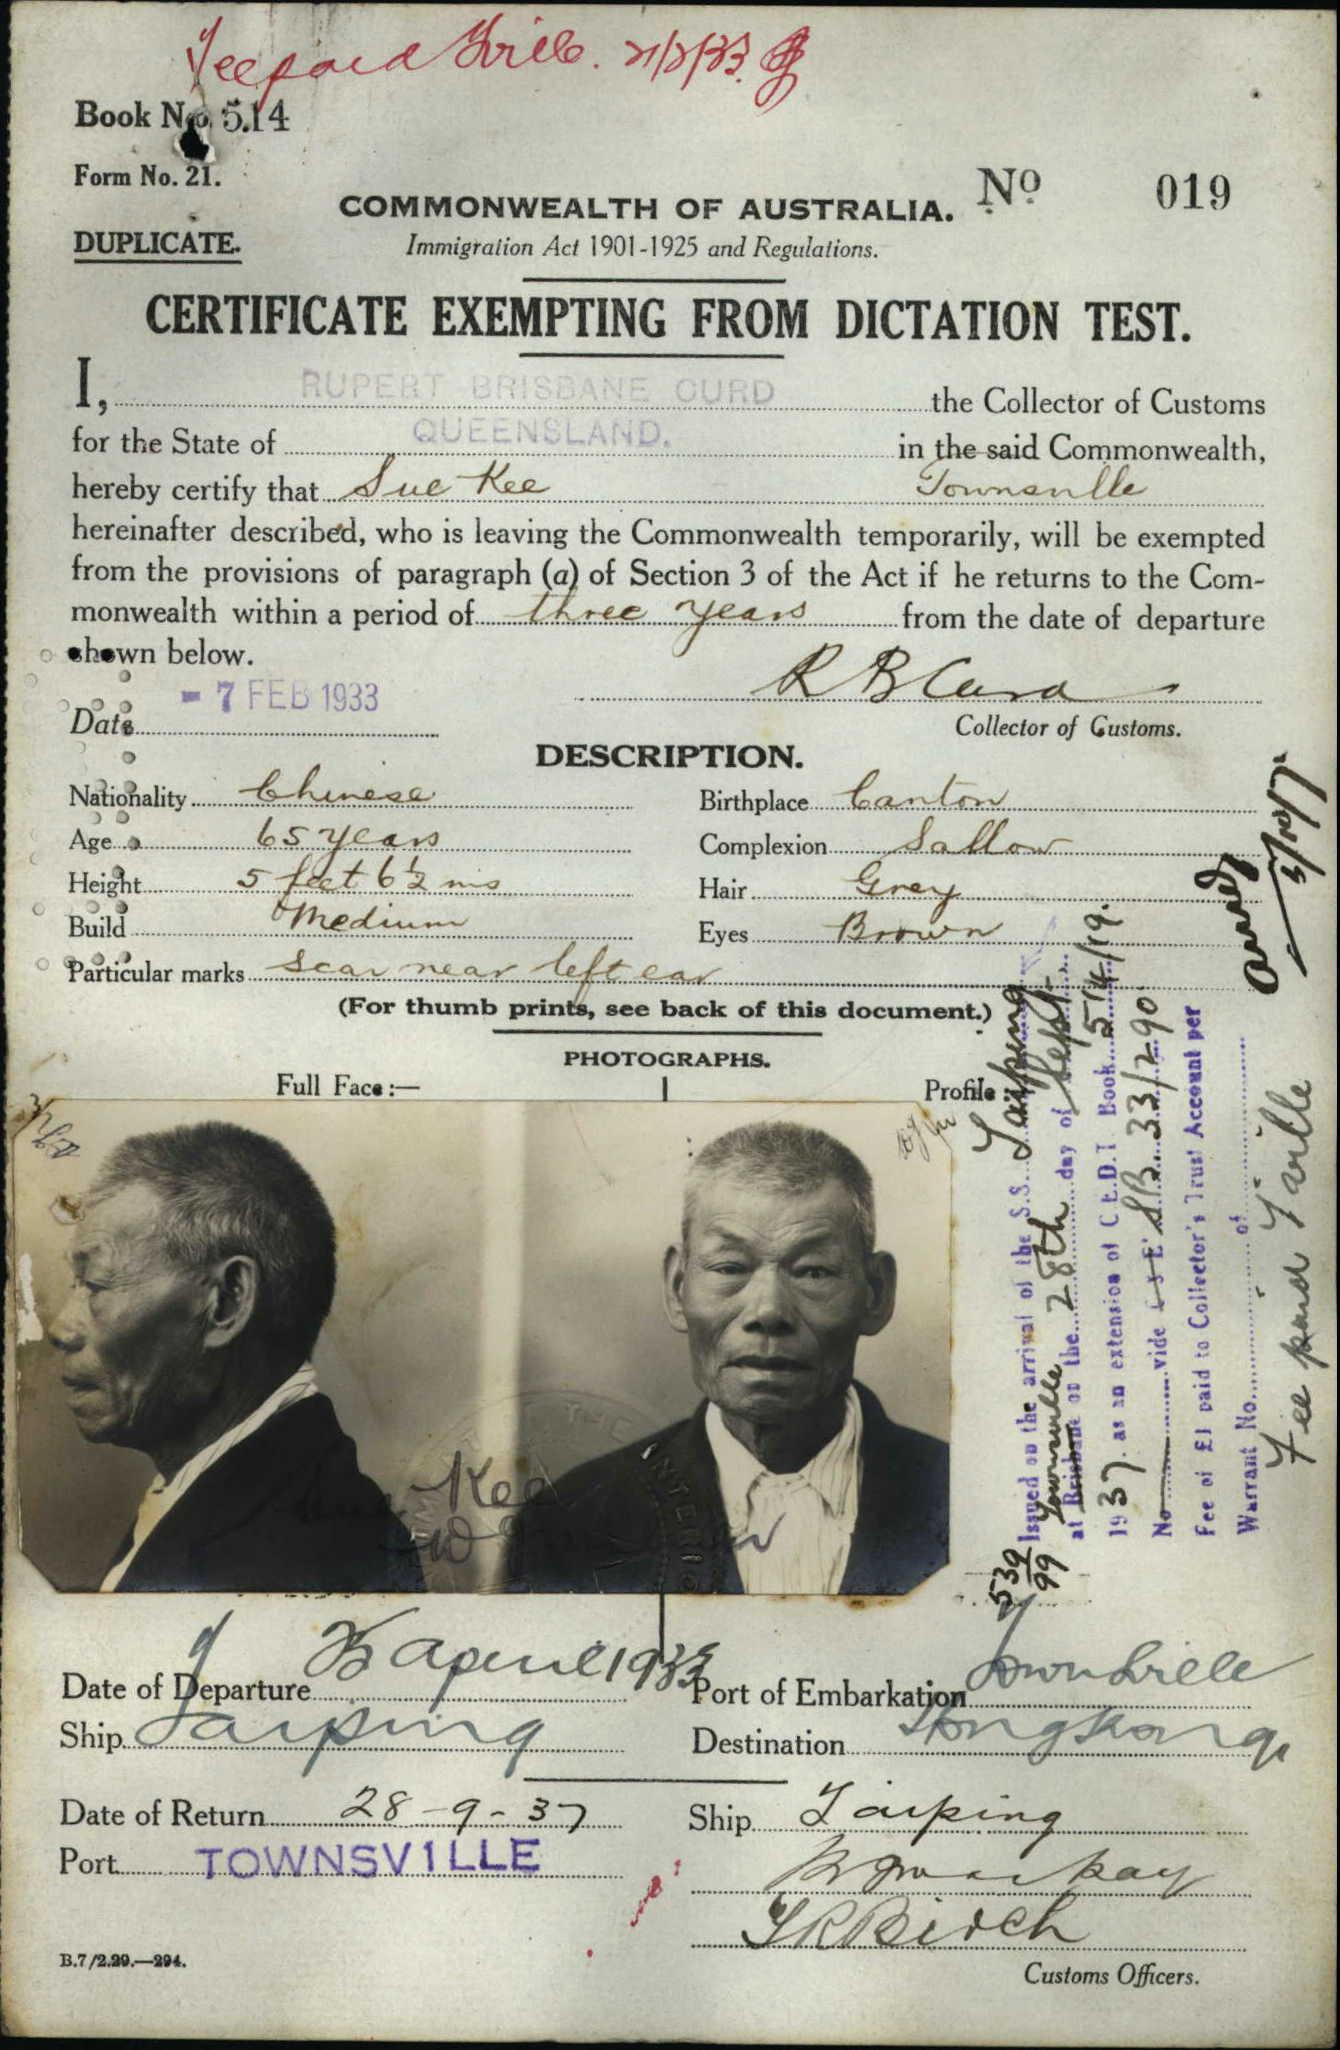 Fee paid Tville. 21/2/33.
Book No. 514
Form No. 21.
COMMONWEALTH OF AUSTRALIA. No 019
DUPLICATE.
Immigration Act 1901-1925 and Regulations.
CERTIFICATE EXEMPTING FROM DICTATION TEST.
I, RUPERT BRISBANE CURD the Collector of Customs
for the State of QUEENSLAND. in the said Commonwealth,
hereby certify that Sue Kee Townsville
hereinafter described, who is leaving the Commonwealth temporarily, will be exempted
from the provisions of paragraph (a) of Section 3 of the Act if he returns to the Com-
monwealth within a period of three years from the date of departure
shown below.
- 7 FEB 1933
R B Curd
Date
Collector of Customs.
DESCRIPTION.
Nationality Chinese Birthplace Canton
Age 65 years Complexion Sallow
Height 5 feet 6½ ins Hair Grey
Build Medium Eyes Brown
Particular marks Scar near left ear
(For thumb prints, see back of this document.)
PHOTOGRAPHS.
Full Face:— Profile:—
Kee
INTERIOR
Issued on the arrival of the S.S. Taiping
Townsville
at Brisbane on the 28th day of Sept.
1937. as an extension of C.E.D.T. Book 514/19.
No vide C & E' SB. 33/290.
Fee of £1 paid to Collector's Trust Account per
Warrant No. of
Fee paid Tville
539
99
Date of Departure 25 April 1933 Port of Embarkation Townsville
Ship Taiping Destination Hongkong
Date of Return 28-9-37 Ship Taiping
Port TOWNSVILLE
Birch
B.7/2.29.—294.
Customs Officers.